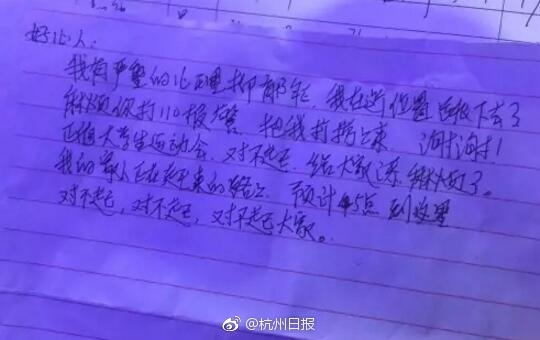 好心人:
我有严重的心理抑郁症,我在这位置跳下去了
麻烦你打110报警,把我打捞上来,谢谢!
正值大学生运动会,对不起,给大家添麻烦了。
我的家人正在赶来的路上,预计4、5点到这里
对不起,对不起,对不起大家。
@杭州日报